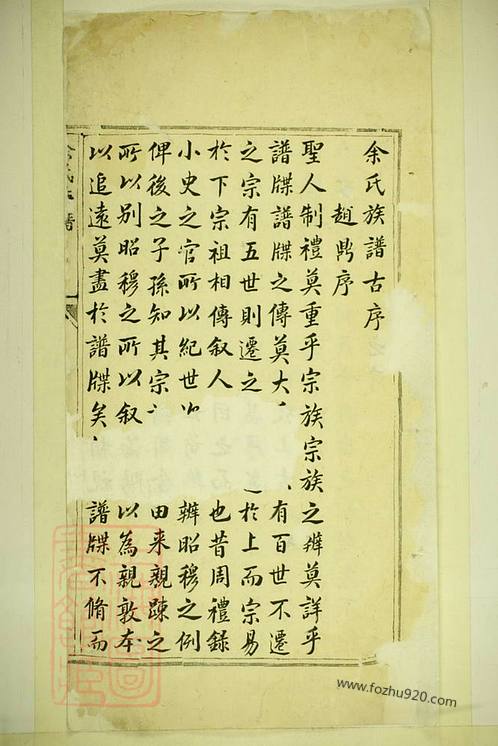 余氏族譜古序
趙鼎序
聖人制禮莫重乎宗族宗族之辨莫詳乎
譜牒譜牒之傳莫大 有百世不遷
之宗有五世則遷之 於上而宗易
於下宗祖相傳叙人 也昔周禮錄
小史之官所以紀世 辨昭穆之例
俾後之子孫知其宗 田来親疎之
所以别昭穆之所以叙 以為親敦本
以追遠莫盡於譜牒矣 譜牒不脩而
www.fozhu920.com